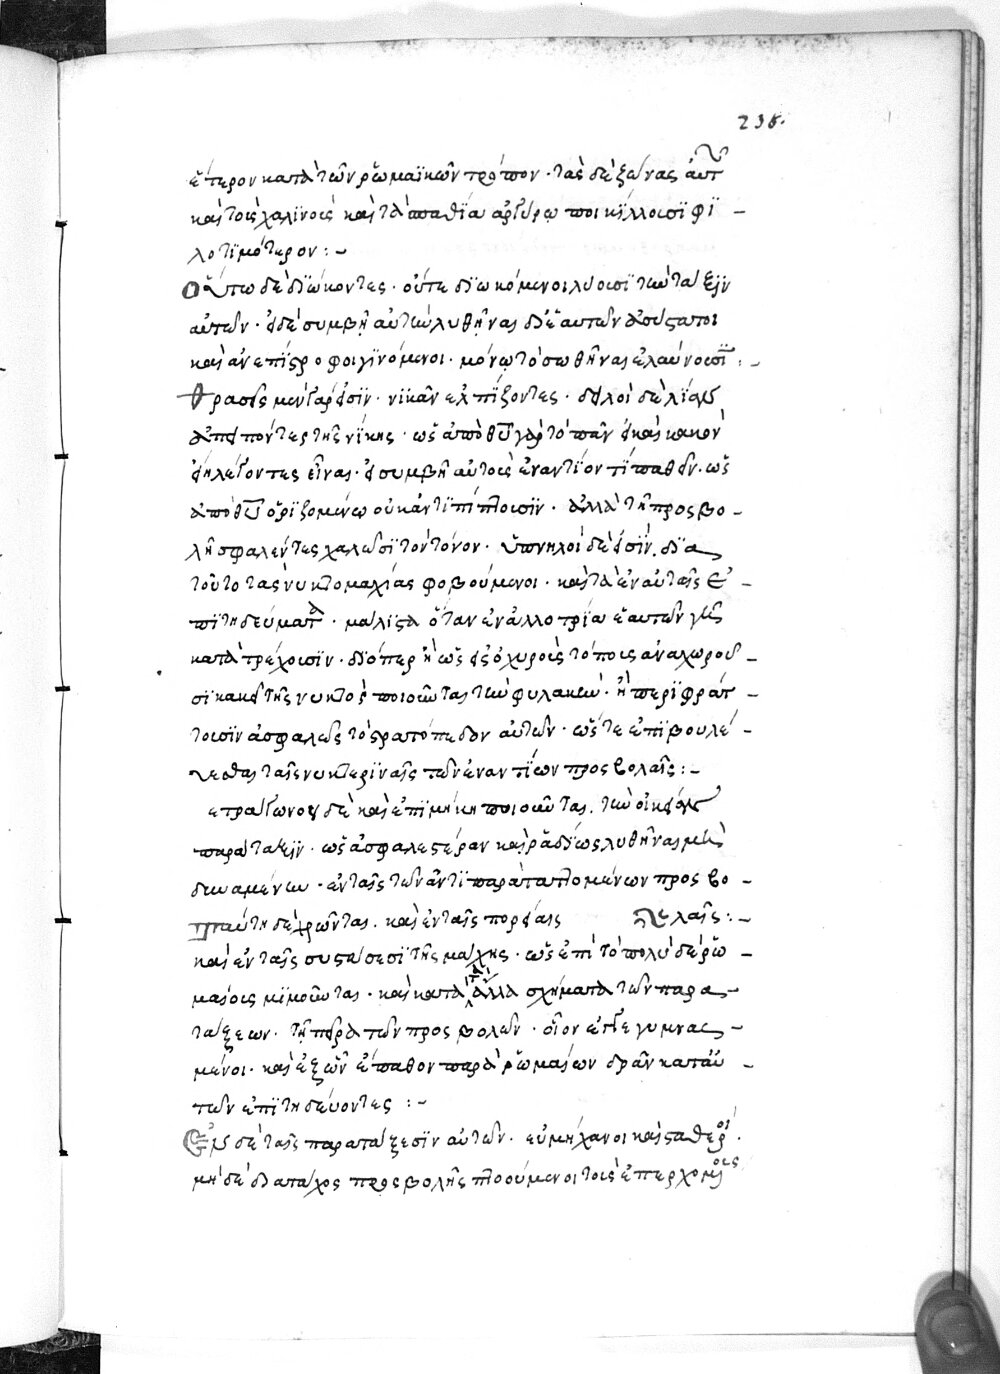 238.
ἕτερον κατὰ τῶν ῥωμαϊκῶν τρόπον · τὰς δὲ ξώνας αὐτ
καὶ τοὺς χαλινοὺς καὶ τὰ σπαθία ἀργύρω ποικίλλουσι φι –
λοτιμότερον : –
Οὕτω δὲ διώκοντες · οὔτε διωκόμενοι λύουσι τὴν τάξιν
αὐτῶν · εἰ δὲ συμβῆ αὐτὴν λυθῆναι δι' ἑαυτῶν ἀσύστατοι
καὶ ἀνεπίστροφοι γινόμενοι · μόνω τὸ σωθῆναι ἐλαύνουσιν : –
θρασεῖς μὲν γάρ εἰσιν · νικᾶν ἐλπίζοντες · δειλοὶ δὲ λίαν
ἀπειπόντες τῆς νίκης · ὡς ἀπὸ θυ γὰρ τὸ πᾶν εἰ καὶ κακὸν
εἴη λέγοντες εἶναι · εἰ συμβῆ αὐτοὺς ἐναντίον τι παθεῖν · ὡς
ἀπὸ θυ ὁριζομένω οὐκ ἀντιπίπτουσιν · ἀλλὰ τῆ προσβο –
λῆ σφαλέντες χαλῶσι τὸν τόνον · ὑπνηλοὶ δέ εἰσιν · διὰ
τοῦτο τὰς νυκτομαχίας φοβούμενοι · καὶ τὰ ἐν αὐταῖς ἐ –
πιτηδεύματα · μάλιστα ὅταν ἐν ἀλλοτρία ἑαυτῶν γῆς
κατατρέχουσιν · διόπερ ἢ ὡς εἰς ὀχυροὺς τόπους ἀναχωροῦ –
σι κἀκεῖ τῆς νυκτὸς ποιοῦνται τὴν φυλακὴν · ἢ περιφράτ –
τουσιν ἀσφαλῶς τὸ στρατόπεδον αὐτῶν · ὥστε ἐπιβουλεύ –
εσθαι ταῖς νυκτεριναῖς τῶν ἐναντίων προσβολαῖς : –
ετράγωνον δὲ καὶ ἐπιμήκη ποιοῦνται · τὴν οἰκείαν
παράταξιν · ὡς ἀσφαλεστέραν καὶ ῥαδίως λυθῆναι μὴ
δυναμένην · ἐν ταῖς τῶν ἀντιπαραταττομένων προσβο –
Ταύτη δὲ χρῶνται · καὶ ἐν ταῖς πορείαις λαῖς : –
καὶ ἐν ταῖς συστάσεσι τῆς μάχης · ὡς ἐπὶ τὸ πολὺ δὲ ῥω
μαίους μιμοῦνται · καὶ κατὰ τὰ ἄλλα σχήματα τῶν παρα –
τάξεων · τῆ πείρα τῶν προσβολῶν · οἷον ἐγγεγυμνασ –
μένοι · καὶ ἐξ ὧν ἔπαθον παρὰ ῥωμαίων δρᾶν κατ' αὐ –
τῶν ἐπιτηδεύοντες : –
Ἐν δὲ ταῖς παρατάξεσιν αὐτῶν · εὐμήχανοι καὶ σταθεροί ·
μηδὲ διὰ τάχος προσβολῆς πτοούμενοι τοὺς ἐπερχομένους